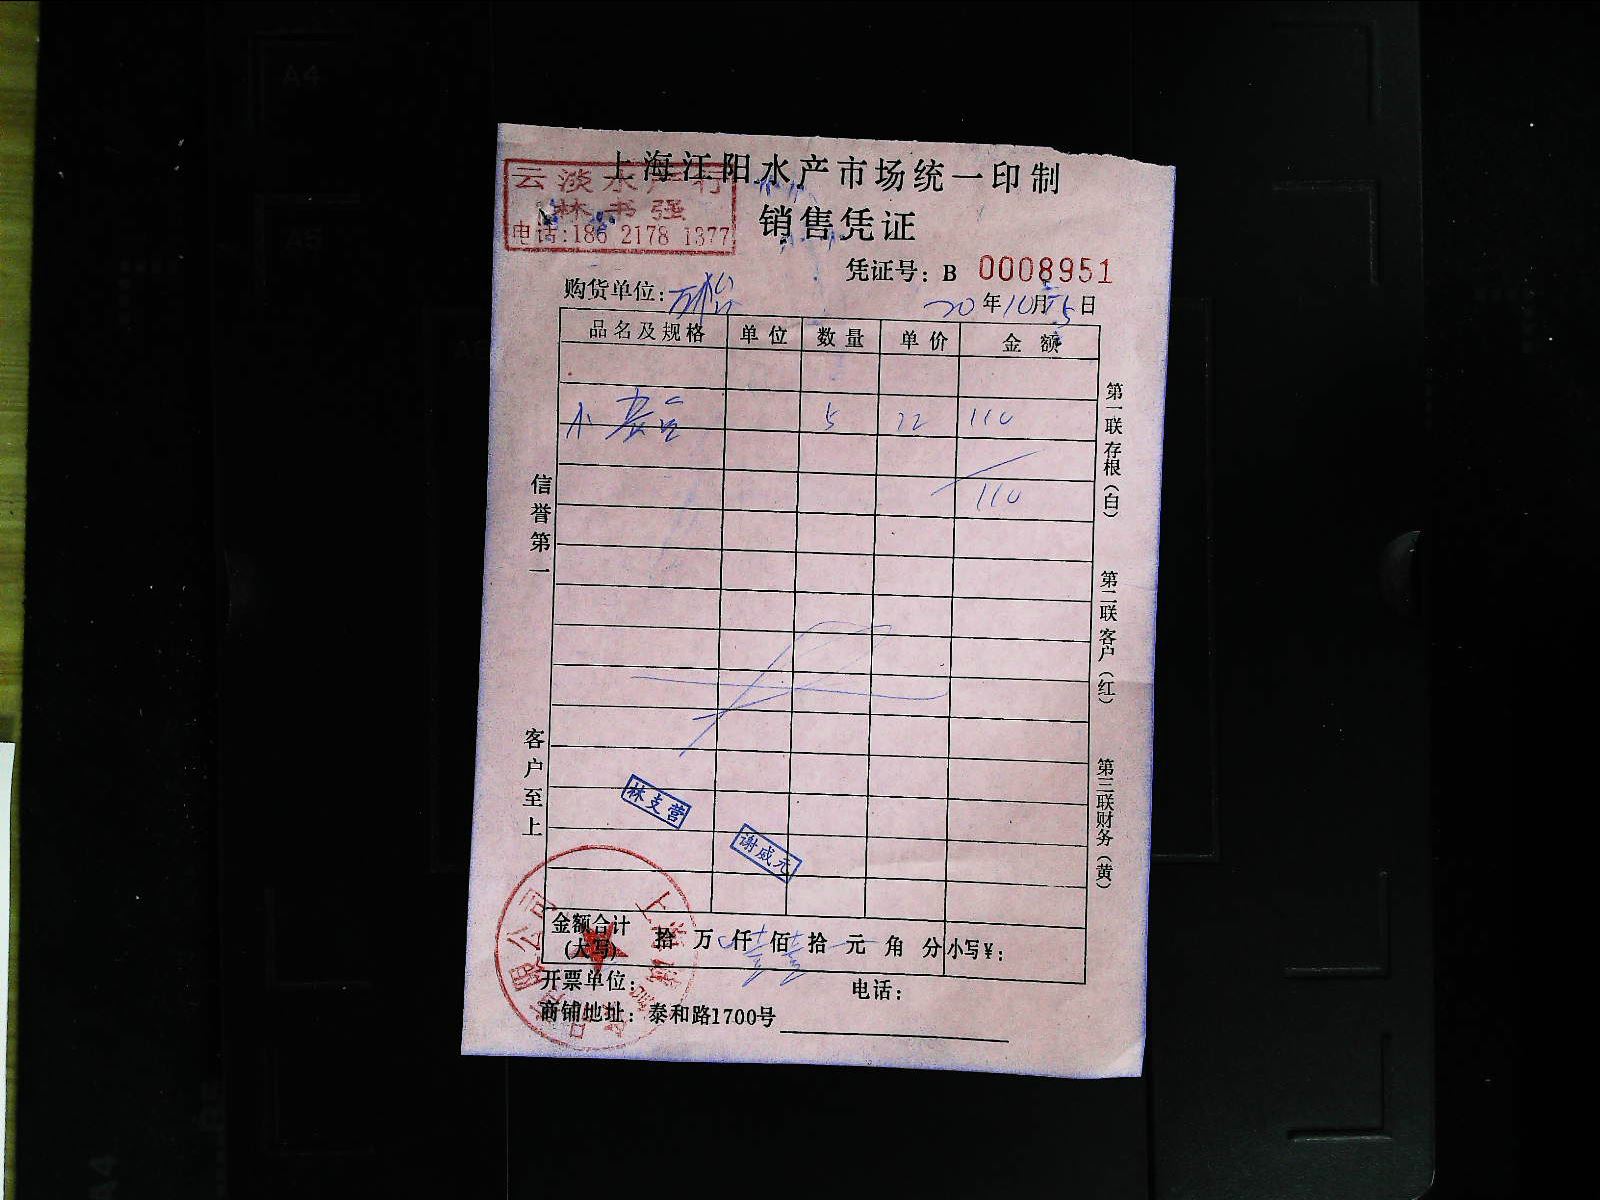 上海江阳水产市场统一印制
云淡水产行
林书强
电话:186 2178 1377
销售凭证
凭证号: B 0008951
购货单位:
20年10月15日
品名及规格 单位 数量 单价 金额
小 5 22 110
110
信誉第一
客户至上
第一联存根(白)
第二联客户(红)
第三联财务(黄)
林支营
谢威元
金额合计(大写) 拾 万 仟 壹 佰 壹 拾 元 角 分 小写¥:
开票单位: 电话:
商铺地址: 泰和路1700号
上海
限公司
A4
A5
A4